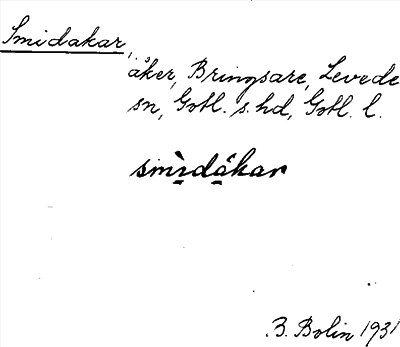 Smidakar,
åker, Bringsare, Levede
sn, Gotl. s. hd, Gotl. l.
smìdâkar
B. Bolin 1931